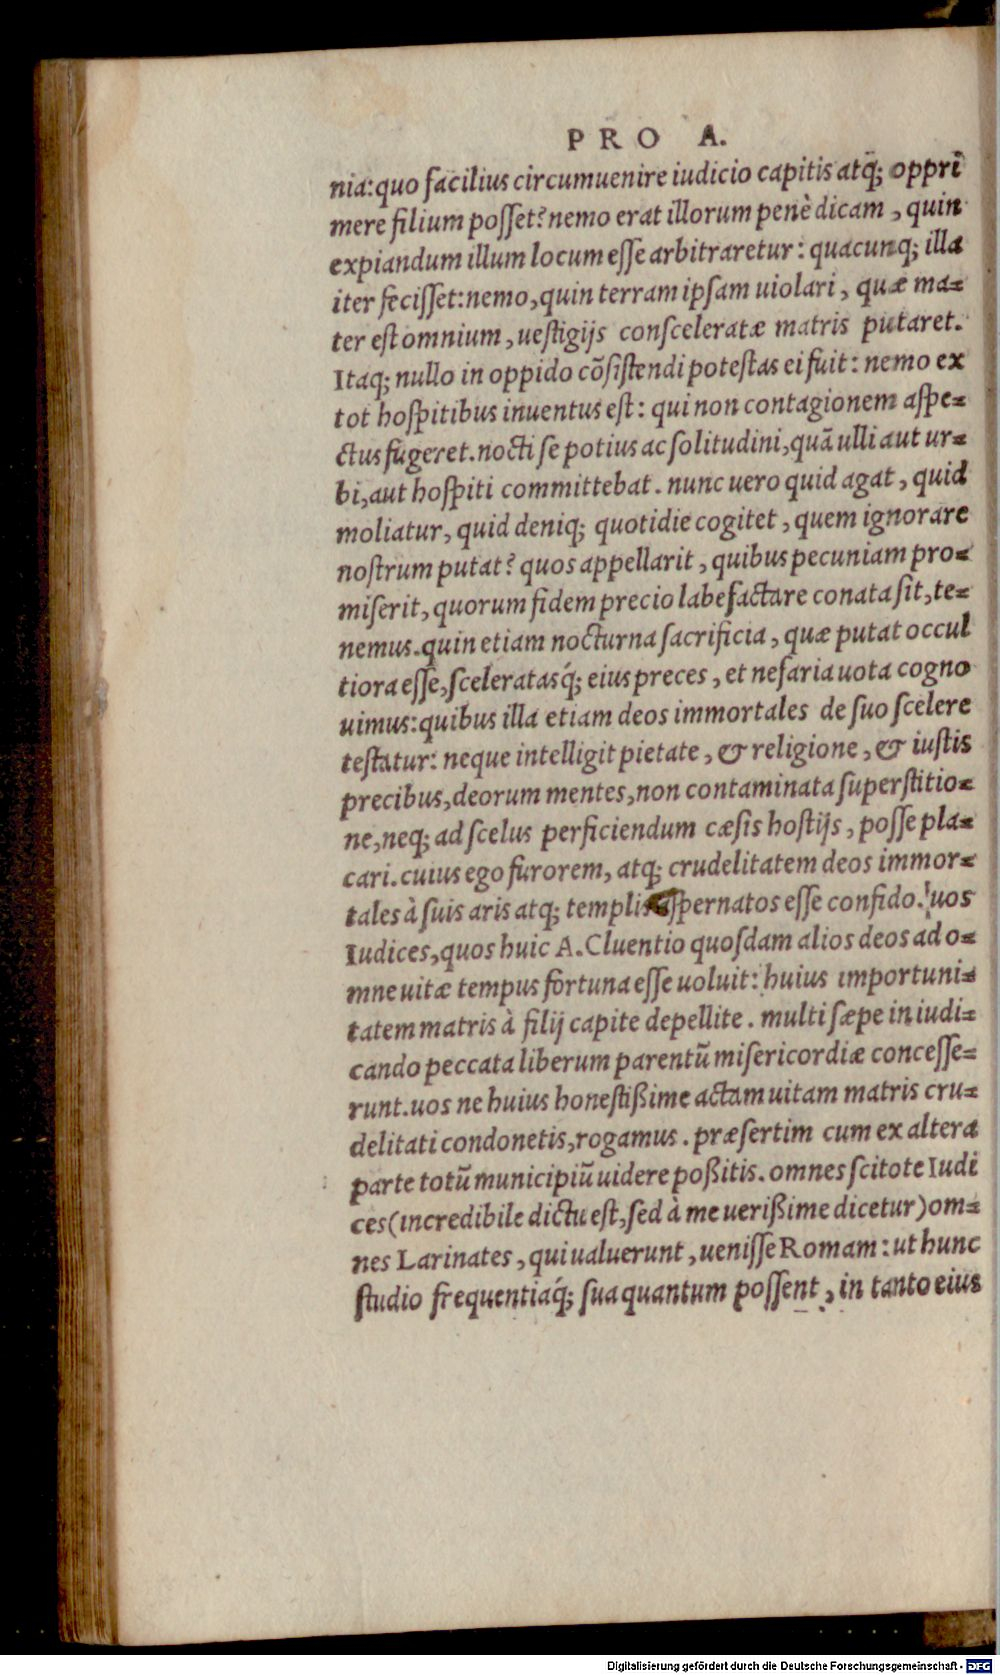 PRO A.
nia: quo facilius circumuenire iudicio capitis atq̃; opprĩ
mere filium posset? nemo erat illorum penè dicam, quin
expiandum illum locum esse arbitraretur: quacunq; illa
iter fecisset: nemo, quin terram ipsam uiolari, quæ ma=
ter est omnium, uestigijs consceleratæ matris putaret.
Itaq; nullo in oppido cõsistendi potestas ei fuit: nemo ex
tot hospitibus inuentus est: qui non contagionem aspe=
ctus fugeret. nocti se potius ac solitudini, quã ulli aut ur=
bi, aut hospiti committebat. nunc uero quid agat, quid
moliatur, quid deniq; quotidie cogitet, quem ignorare
nostrum putat? quos appellarit, quibus pecuniam pro=
miserit, quorum fidem precio labefactare conata sit, te=
nemus. quin etiam nocturna sacrificia, quæ putat occul
tiora esse, sceleratasq́; eius preces, et nefaria uota cogno
uimus: quibus illa etiam deos immortales de suo scelere
testatur: neque intelligit pietate, & religione, & iustis
precibus, deorum mentes, non contaminata superstitio=
ne, neq; ad scelus perficiendum cæsis hostijs, posse pla=
cari. cuius ego furorem, atq; crudelitatem deos immor=
tales à suis aris atq; templis aspernatos esse confido. uos
Iudices, quos huic A. Cluentio quosdam alios deos ad o=
mne uitæ tempus fortuna esse uoluit: huius importuni=
tatem matris à filij capite depellite. multi sæpe in iudi=
cando peccata liberum parentũ misericordiæ concesse=
runt. uos ne huius honestißime actam uitam matris cru=
delitati condonetis, rogamus. præsertim cum ex altera
parte totũ municipiũ uidere poßitis. omnes scitote Iudi
ces (incredibile dictu est, sed à me uerißime dicetur) om=
nes Larinates, qui ualuerunt, uenisse Romam: ut hunc
studio frequentiaq́; sua quantum possent, in tanto eius
Digitalisierung gefördert durch die Deutsche Forschungsgemeinschaft - DFG